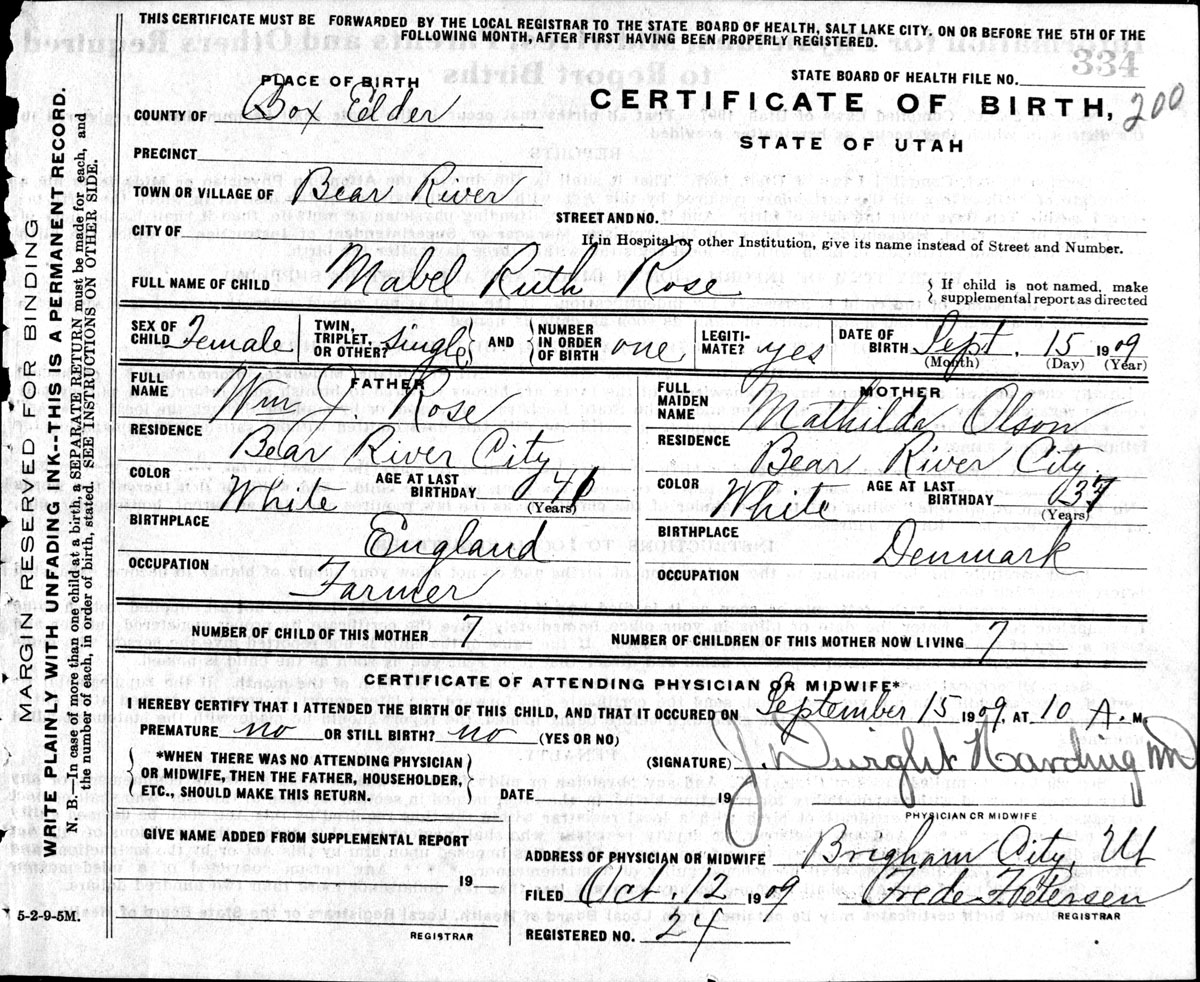 THIS CERTIFICATE MUST BE FORWARDED BY THE LOCAL REGISTRAR TO THE STATE BOARD OF HEALTH, SALT LAKE CITY, ON OR BEFORE THE 5TH OF THE
FOLLOWING MONTH, AFTER FIRST HAVING BEEN PROPERLY REGISTERED.
334
PLACE OF BIRTH
STATE BOARD OF HEALTH FILE NO.
COUNTY OF Box Elder
CERTIFICATE OF BIRTH, 200
STATE OF UTAH
PRECINCT
TOWN OR VILLAGE OF Bear River
STREET AND NO.
CITY OF
If in Hospital or other Institution, give its name instead of Street and Number.
FULL NAME OF CHILD Mabel Ruth Rose
If child is not named, make
supplemental report as directed
SEX OF CHILD Female
TWIN, TRIPLET, OR OTHER? Single
AND NUMBER IN ORDER OF BIRTH one
LEGITIMATE? yes
DATE OF BIRTH Sept. 15 1909
(Month) (Day) (Year)
FATHER
FULL NAME Wm J Rose
RESIDENCE Bear River City
COLOR White AGE AT LAST BIRTHDAY (Years)
BIRTHPLACE England
OCCUPATION Farmer
MOTHER
FULL MAIDEN NAME Mathilda Olson
RESIDENCE Bear River City
COLOR White AGE AT LAST BIRTHDAY 37 (Years)
BIRTHPLACE Denmark
OCCUPATION
NUMBER OF CHILD OF THIS MOTHER 7 NUMBER OF CHILDREN OF THIS MOTHER NOW LIVING 7
CERTIFICATE OF ATTENDING PHYSICIAN OR MIDWIFE*
I HEREBY CERTIFY THAT I ATTENDED THE BIRTH OF THIS CHILD, AND THAT IT OCCURED ON September 15 1909, AT 10 A. M.
PREMATURE no OR STILL BIRTH? no (YES OR NO)
*WHEN THERE WAS NO ATTENDING PHYSICIAN
OR MIDWIFE, THEN THE FATHER, HOUSEHOLDER,
ETC., SHOULD MAKE THIS RETURN.
(SIGNATURE) J. Dwight Harding MD
DATE 19
PHYSICIAN OR MIDWIFE
GIVE NAME ADDED FROM SUPPLEMENTAL REPORT
19
REGISTRAR
ADDRESS OF PHYSICIAN OR MIDWIFE Brigham City Ut
FILED Oct. 12 1909 Frede F. Petersen
REGISTRAR
REGISTERED NO. 24
5-2-9-5M.
MARGIN RESERVED FOR BINDING
WRITE PLAINLY WITH UNFADING INK--THIS IS A PERMANENT RECORD.
N. B.—In case of more than one child at a birth, a SEPARATE RETURN must be made for each, and
the number of each, in order of birth, stated. SEE INSTRUCTIONS ON OTHER SIDE.